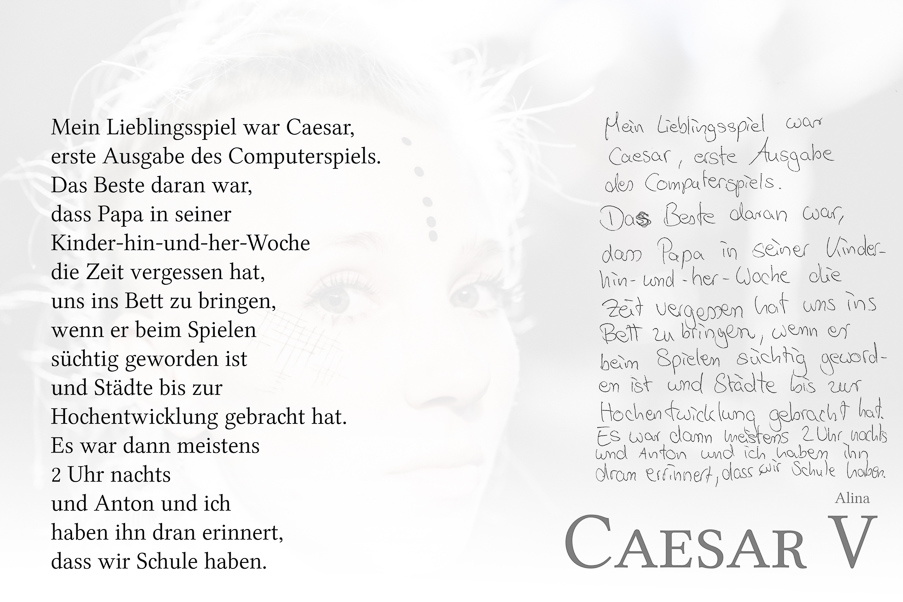 Mein Lieblingsspiel war Caesar,
erste Ausgabe des Computerspiels.
Das Beste daran war,
dass Papa in seiner
Kinder-hin-und-her-Woche
die Zeit vergessen hat,
uns ins Bett zu bringen,
wenn er beim Spielen
süchtig geworden ist
und Städte bis zur
Hochentwicklung gebracht hat.
Es war dann meistens
2 Uhr nachts
und Anton und ich
haben ihn dran erinnert,
dass wir Schule haben.
Mein Lieblingsspiel war
Caesar, erste Ausgabe
des Computerspiels.
Das Beste daran war,
dass Papa in seiner Kinder-
hin-und-her-Woche die
Zeit vergessen hat uns ins
Bett zu bringen, wenn er
beim Spielen süchtig geword-
en ist und Städte bis zur
Hochentwicklung gebracht hat.
Es war dann meistens 2 Uhr nachts
und Anton und ich haben ihn
dran erinnert, dass wir Schule haben.
Alina
CAESAR V